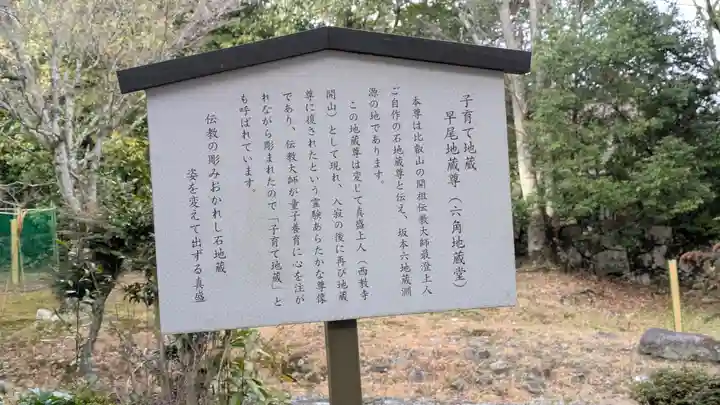 子育て地蔵
早尾地蔵尊（六角地蔵堂）
本尊は比叡山の開祖伝教大師最澄上人
ご自作の石地蔵尊と伝え、坂本六地蔵淵
源の地であります。
この地蔵尊は変じて真盛上人（西教寺
開山）として現れ、入寂の後に再び地蔵
尊に復されたという霊験あらたかな尊像
であり、伝教大師が童子養育に心を注が
れながら彫まれたので「子育て地蔵」と
も呼ばれています。
伝教の彫みおかれし石地蔵
姿を変えて出ずる真盛